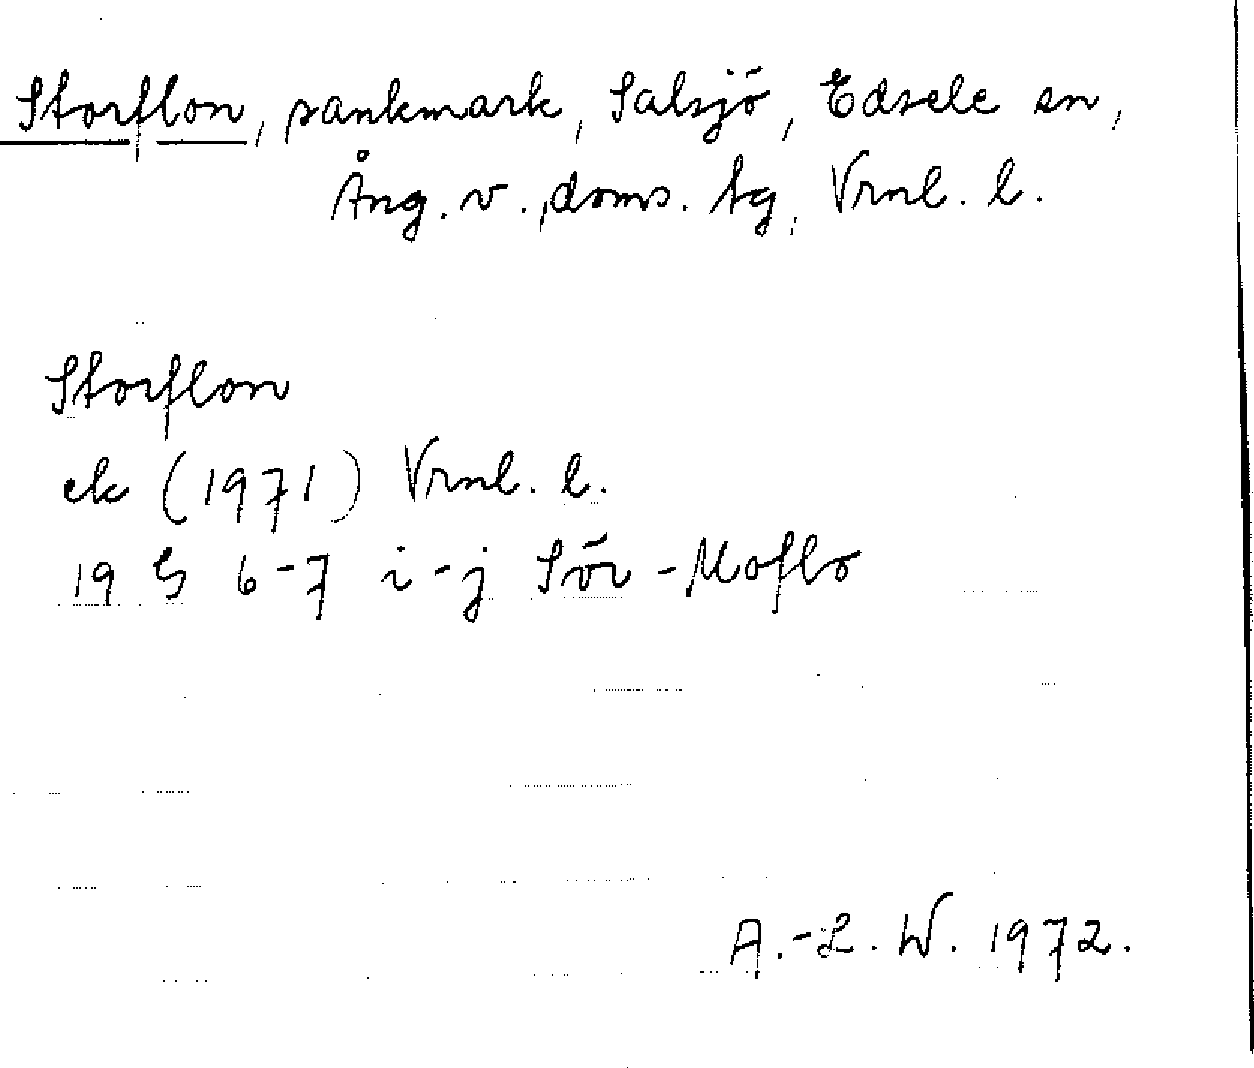 Storflon, sankmark, Salsjö, Edsele sn,
Ång. v., doms. tg, Vrnl. l.
Storflon
ek (1971) Vrnl. l.
19 G 6-7 i-j Sör-Moflo
A.-L. W. 1972.